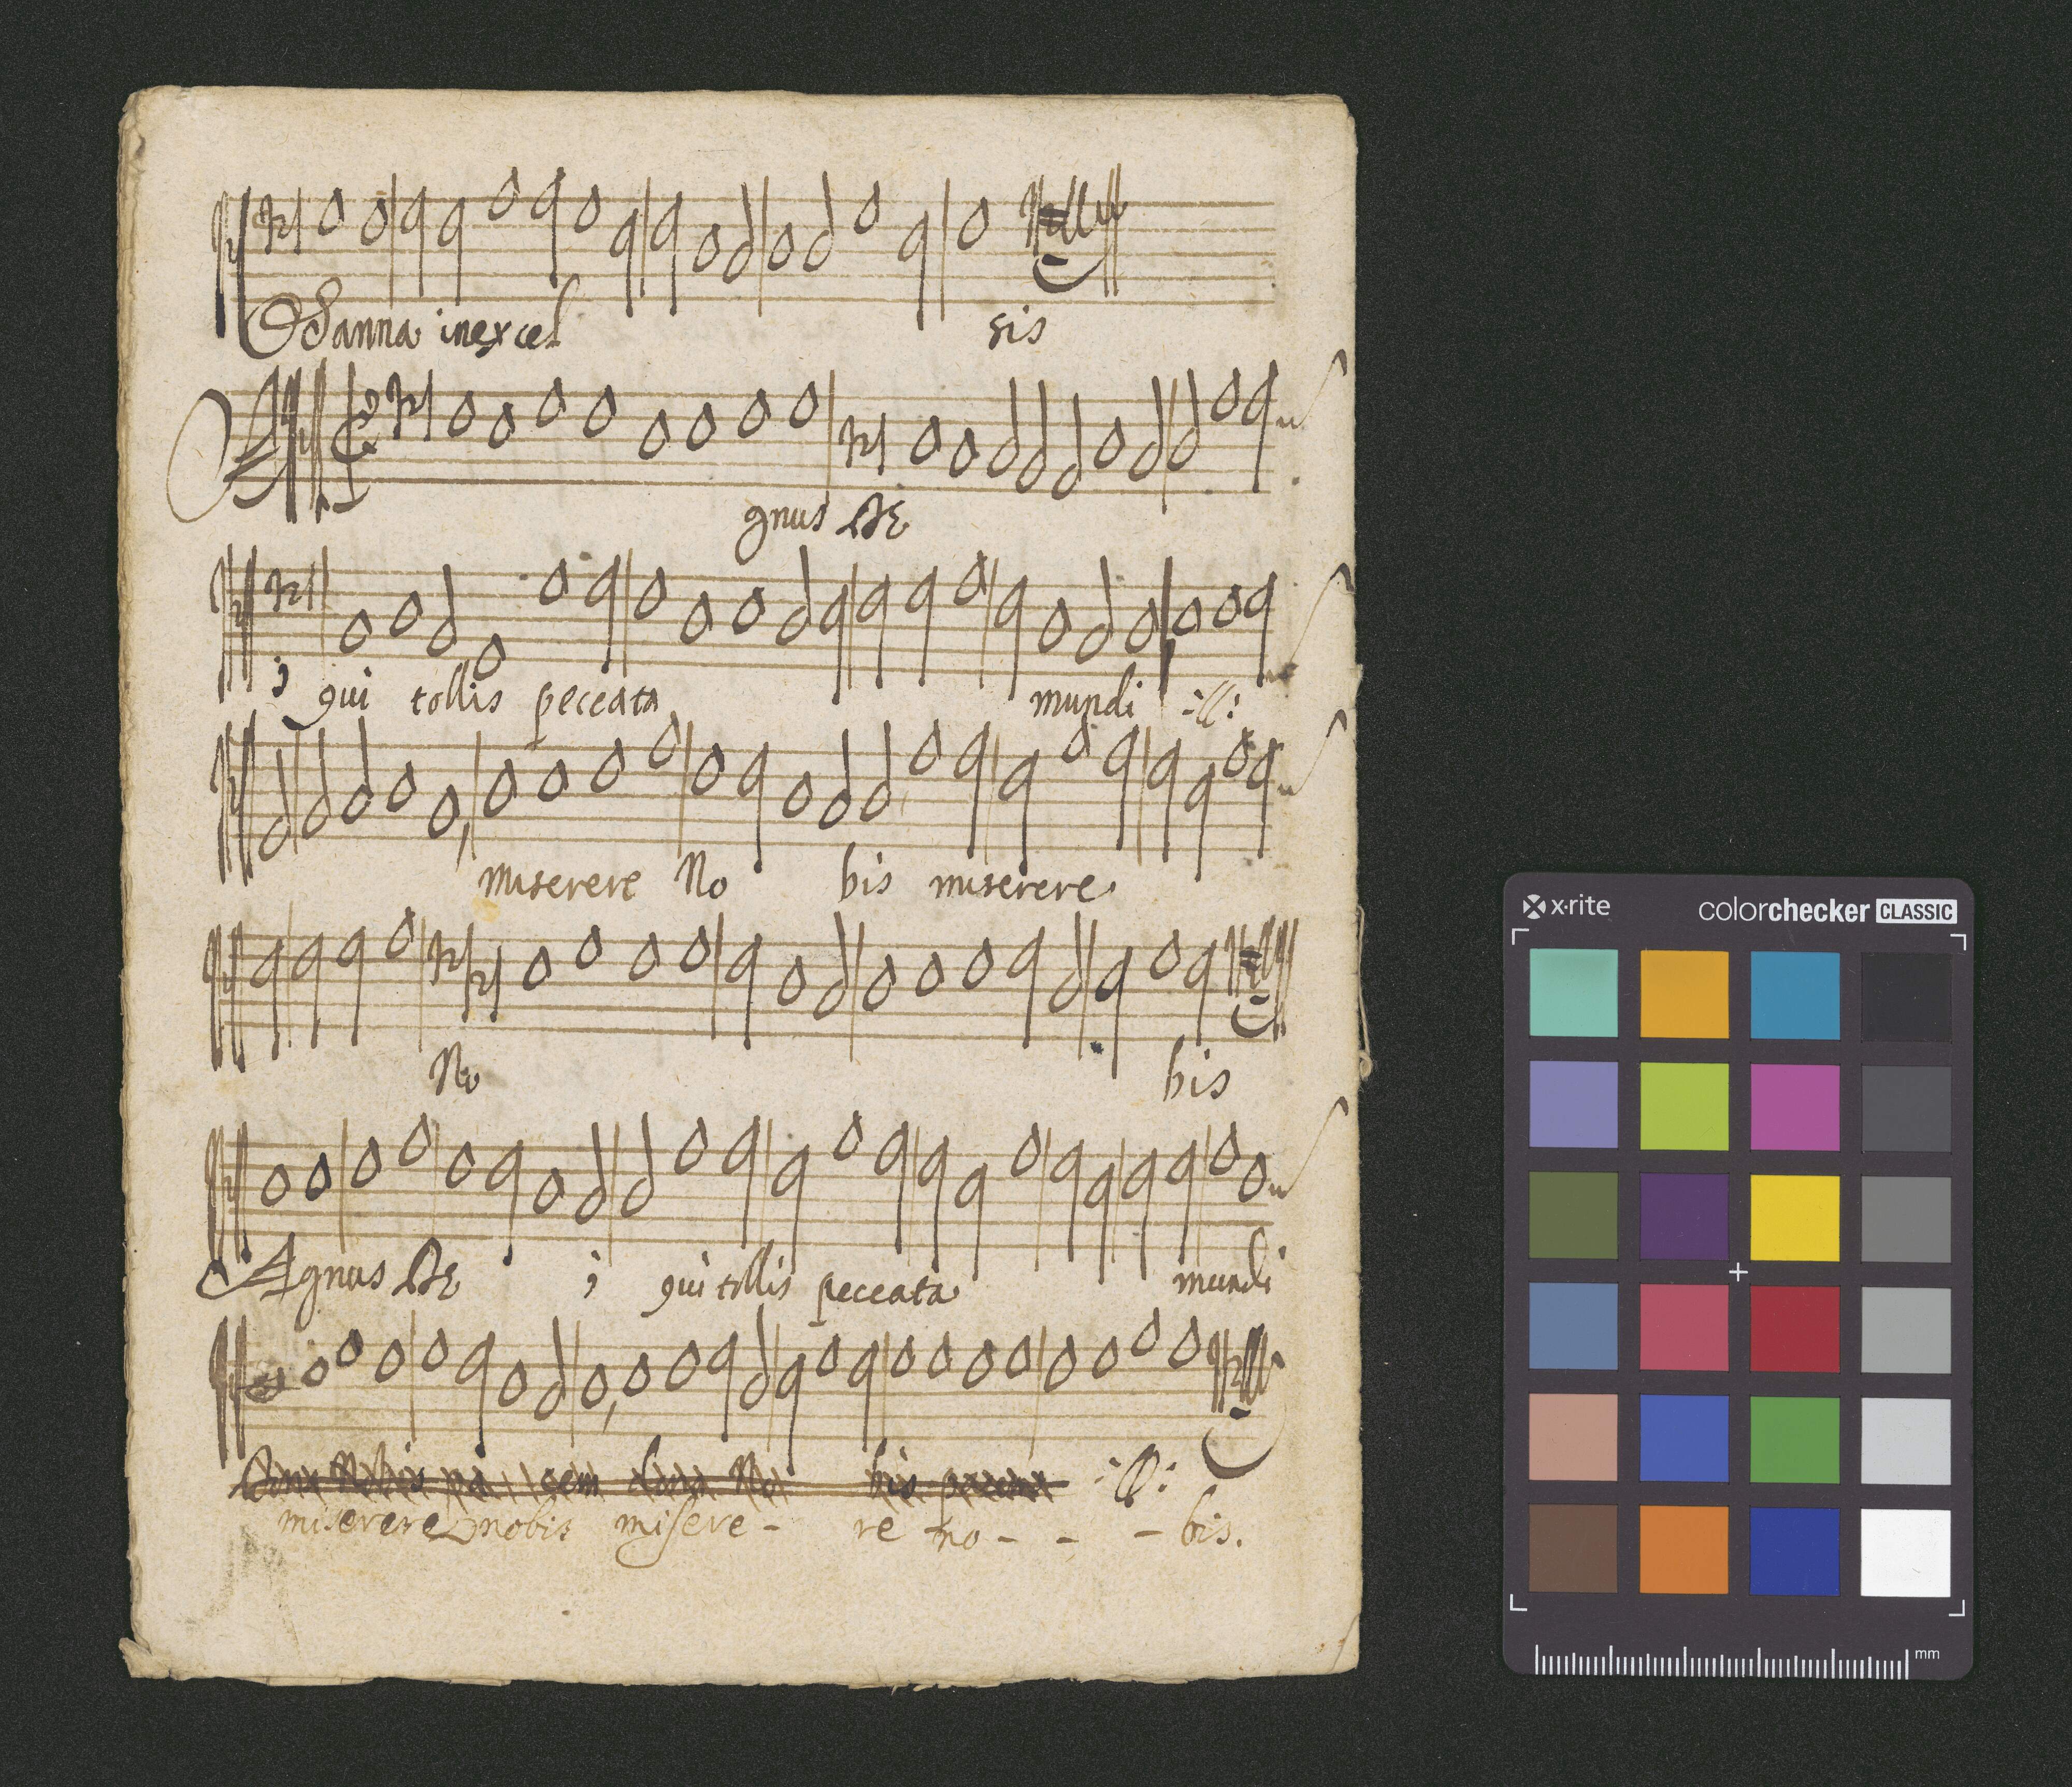 OSanna in excel sis
A gnus DE
j qui tollis peccata mundi :||:
miserere No bis miserere
No bis
Agnus DE j qui tollis peccata mundi
Dona Nobis pa cem dona No bis pacem :||:
miserere nobis misere- re no - - - bis.
x·rite colorchecker CLASSIC
mm